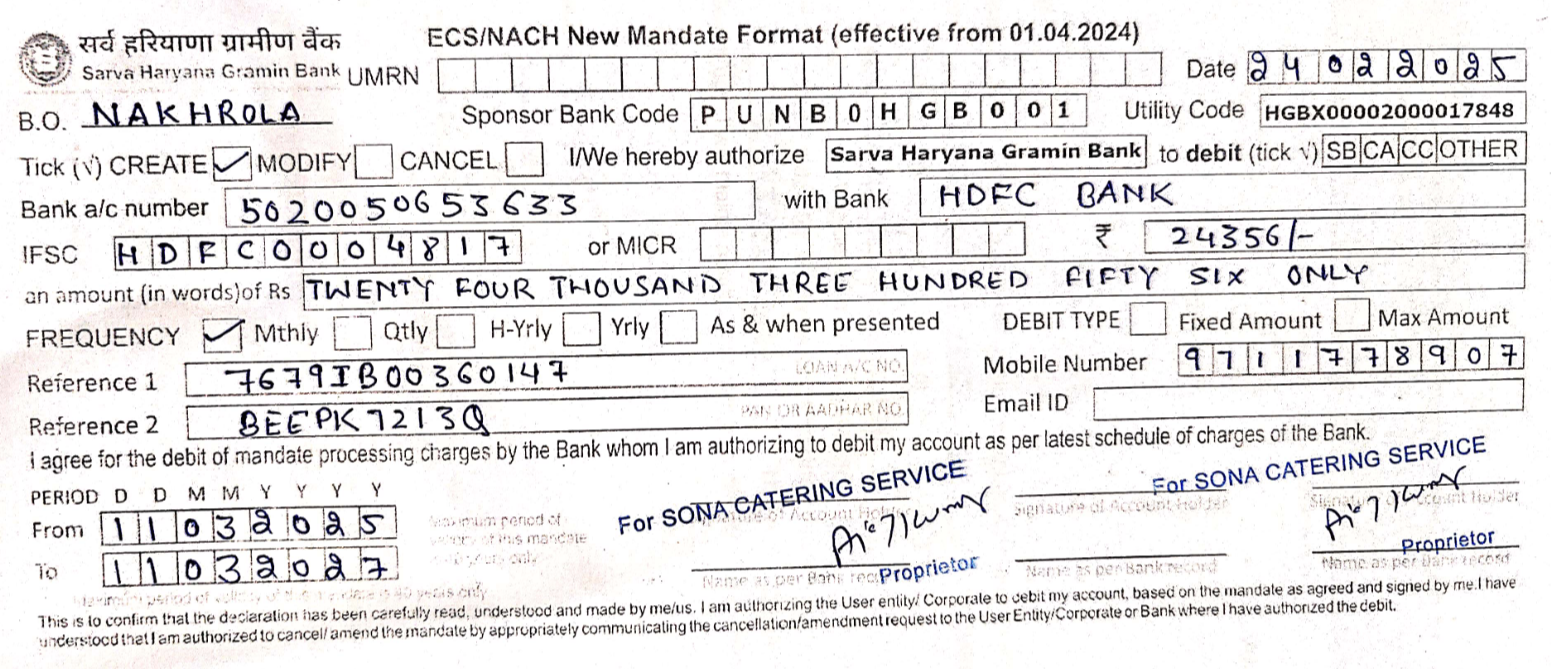 सर्व हरियाणा ग्रामीण बैंक
Sarva Haryana Gramin Bank
ECS/NACH New Mandate Format (effective from 01.04.2024)
UMRN Date 24022025
B.O. NAKHROLA Sponsor Bank Code PUNB0HGB001 Utility Code HGBX00002000017848
Tick (√) CREATE ✓ MODIFY CANCEL I/We hereby authorize Sarva Haryana Gramin Bank to debit (tick √) SB CA CC OTHER
Bank a/c number 5020050653633 with Bank HDFC BANK
IFSC HDFC0004817 or MICR ₹ 24356/-
an amount (in words)of Rs TWENTY FOUR THOUSAND THREE HUNDRED FIFTY SIX ONLY
FREQUENCY ✓ Mthly Qtly H-Yrly Yrly As & when presented DEBIT TYPE Fixed Amount Max Amount
Reference 1 7679IB00360147 LOAN A/C NO. Mobile Number 9711778907
Reference 2 BEEPK7213Q PAN OR AADHAR NO. Email ID
I agree for the debit of mandate processing charges by the Bank whom I am authorizing to debit my account as per latest schedule of charges of the Bank.
PERIOD D D M M Y Y Y Y
For SONA CATERING SERVICE For SONA CATERING SERVICE
Signature of Account Holder Signature of Account Holder Signature of Account Holder
From 11032025 Maximum period of validity of this mandate is 40 years only
To 11032027
Proprietor Proprietor
Name as per Bank record Name as per Bank record Name as per Bank record
Maximum period of validity of this mandate is 40 years only
This is to confirm that the declaration has been carefully read, understood and made by me/us. I am authorizing the User entity/ Corporate to debit my account, based on the mandate as agreed and signed by me.I have
understood that I am authorized to cancel/ amend the mandate by appropriately communicating the cancellation/amendment request to the User Entity/Corporate or Bank where I have authorized the debit.